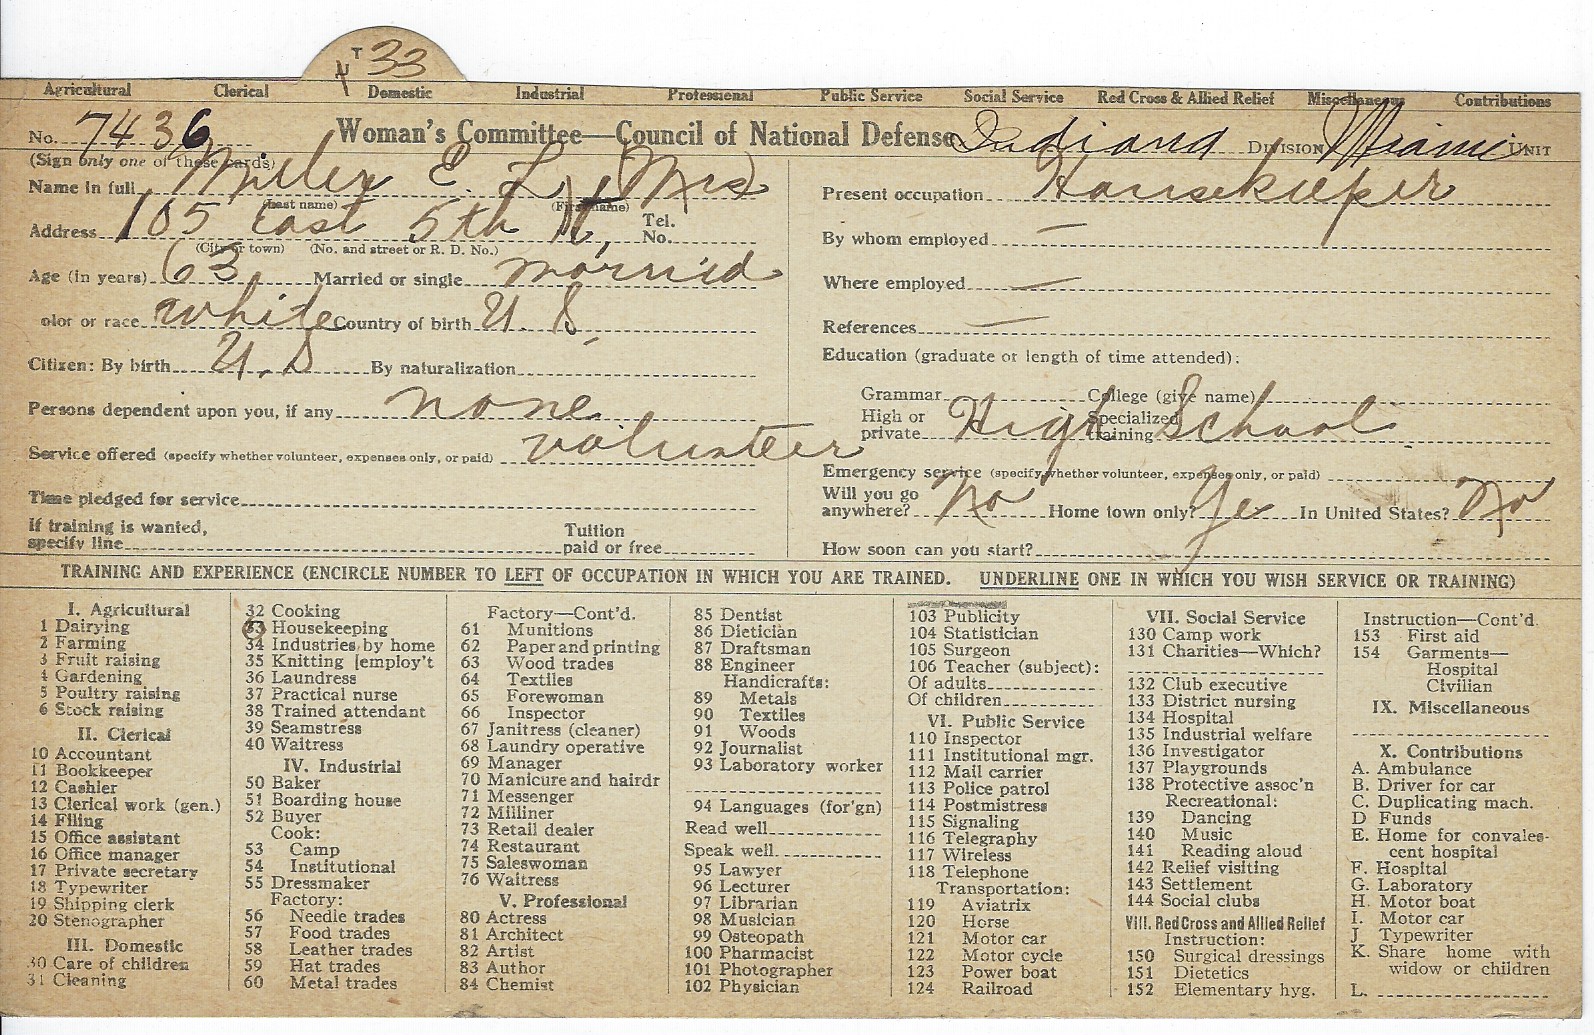 T 33
Agricultural Clerical Domestic Industrial Professional Public Service Social Service Red Cross & Allied Relief Miscellaneous Contributions
No. 7436 Woman's Committee—Council of National Defense Indiana DIVISION Miami UNIT
(Sign only one of these cards)
Name in full Miller E. L. (Mrs)
(Last name) (First name)
Address 105 East 5th St, Tel. No.
(City or town) (No. and street or R. D. No.)
Age (in years) 63 Married or single married
olor or race white Country of birth U. S.
Citizen: By birth U. S By naturalization
Persons dependent upon you, if any none
Service offered (specify whether volunteer, expenses only, or paid) volunteer
Time pledged for service
If training is wanted, specify line Tuition paid or free
Present occupation Housekeeper
By whom employed —
Where employed —
References —
Education (graduate or length of time attended):
Grammar College (give name)
High or private High School Specialized training
Emergency service (specify whether volunteer, expenses only, or paid)
Will you go anywhere? No Home town only? Ye In United States? No
How soon can you start?
TRAINING AND EXPERIENCE (ENCIRCLE NUMBER TO LEFT OF OCCUPATION IN WHICH YOU ARE TRAINED. UNDERLINE ONE IN WHICH YOU WISH SERVICE OR TRAINING)
I. Agricultural
1 Dairying
2 Farming
3 Fruit raising
4 Gardening
5 Poultry raising
6 Stock raising
II. Clerical
10 Accountant
11 Bookkeeper
12 Cashier
13 Clerical work (gen.)
14 Filing
15 Office assistant
16 Office manager
17 Private secretary
18 Typewriter
19 Shipping clerk
20 Stenographer
III. Domestic
30 Care of children
31 Cleaning
32 Cooking
33 Housekeeping
34 Industries by home
35 Knitting [employ't
36 Laundress
37 Practical nurse
38 Trained attendant
39 Seamstress
40 Waitress
IV. Industrial
50 Baker
51 Boarding house
52 Buyer
Cook:
53 Camp
54 Institutional
55 Dressmaker
Factory:
56 Needle trades
57 Food trades
58 Leather trades
59 Hat trades
60 Metal trades
Factory—Cont'd.
61 Munitions
62 Paper and printing
63 Wood trades
64 Textiles
65 Forewoman
66 Inspector
67 Janitress (cleaner)
68 Laundry operative
69 Manager
70 Manicure and hairdr
71 Messenger
72 Milliner
73 Retail dealer
74 Restaurant
75 Saleswoman
76 Waitress
V. Professional
80 Actress
81 Architect
82 Artist
83 Author
84 Chemist
85 Dentist
86 Dietician
87 Draftsman
88 Engineer
Handicrafts:
89 Metals
90 Textiles
91 Woods
92 Journalist
93 Laboratory worker
94 Languages (for'gn)
Read well
Speak well
95 Lawyer
96 Lecturer
97 Librarian
98 Musician
99 Osteopath
100 Pharmacist
101 Photographer
102 Physician
103 Publicity
104 Statistician
105 Surgeon
106 Teacher (subject):
Of adults
Of children
VI. Public Service
110 Inspector
111 Institutional mgr.
112 Mail carrier
113 Police patrol
114 Postmistress
115 Signaling
116 Telegraphy
117 Wireless
118 Telephone
Transportation:
119 Aviatrix
120 Horse
121 Motor car
122 Motor cycle
123 Power boat
124 Railroad
VII. Social Service
130 Camp work
131 Charities—Which?
132 Club executive
133 District nursing
134 Hospital
135 Industrial welfare
136 Investigator
137 Playgrounds
138 Protective assoc'n
Recreational:
139 Dancing
140 Music
141 Reading aloud
142 Relief visiting
143 Settlement
144 Social clubs
VIII. Red Cross and Allied Relief
Instruction:
150 Surgical dressings
151 Dietetics
152 Elementary hyg.
Instruction—Cont'd.
153 First aid
154 Garments—
Hospital
Civilian
IX. Miscellaneous
X. Contributions
A. Ambulance
B. Driver for car
C. Duplicating mach.
D Funds
E. Home for convales-
cent hospital
F. Hospital
G. Laboratory
H. Motor boat
I. Motor car
J Typewriter
K. Share home with
widow or children
L.